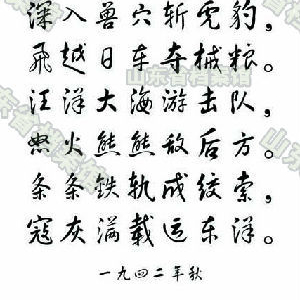 深入兽穴斩虎豹，
飞越日车夺械粮。
汪洋大海游击队，
怒火熊熊敌后方。
条条铁轨成绞索，
寇灰满载运东洋。
一九四二年秋
山东省档案馆